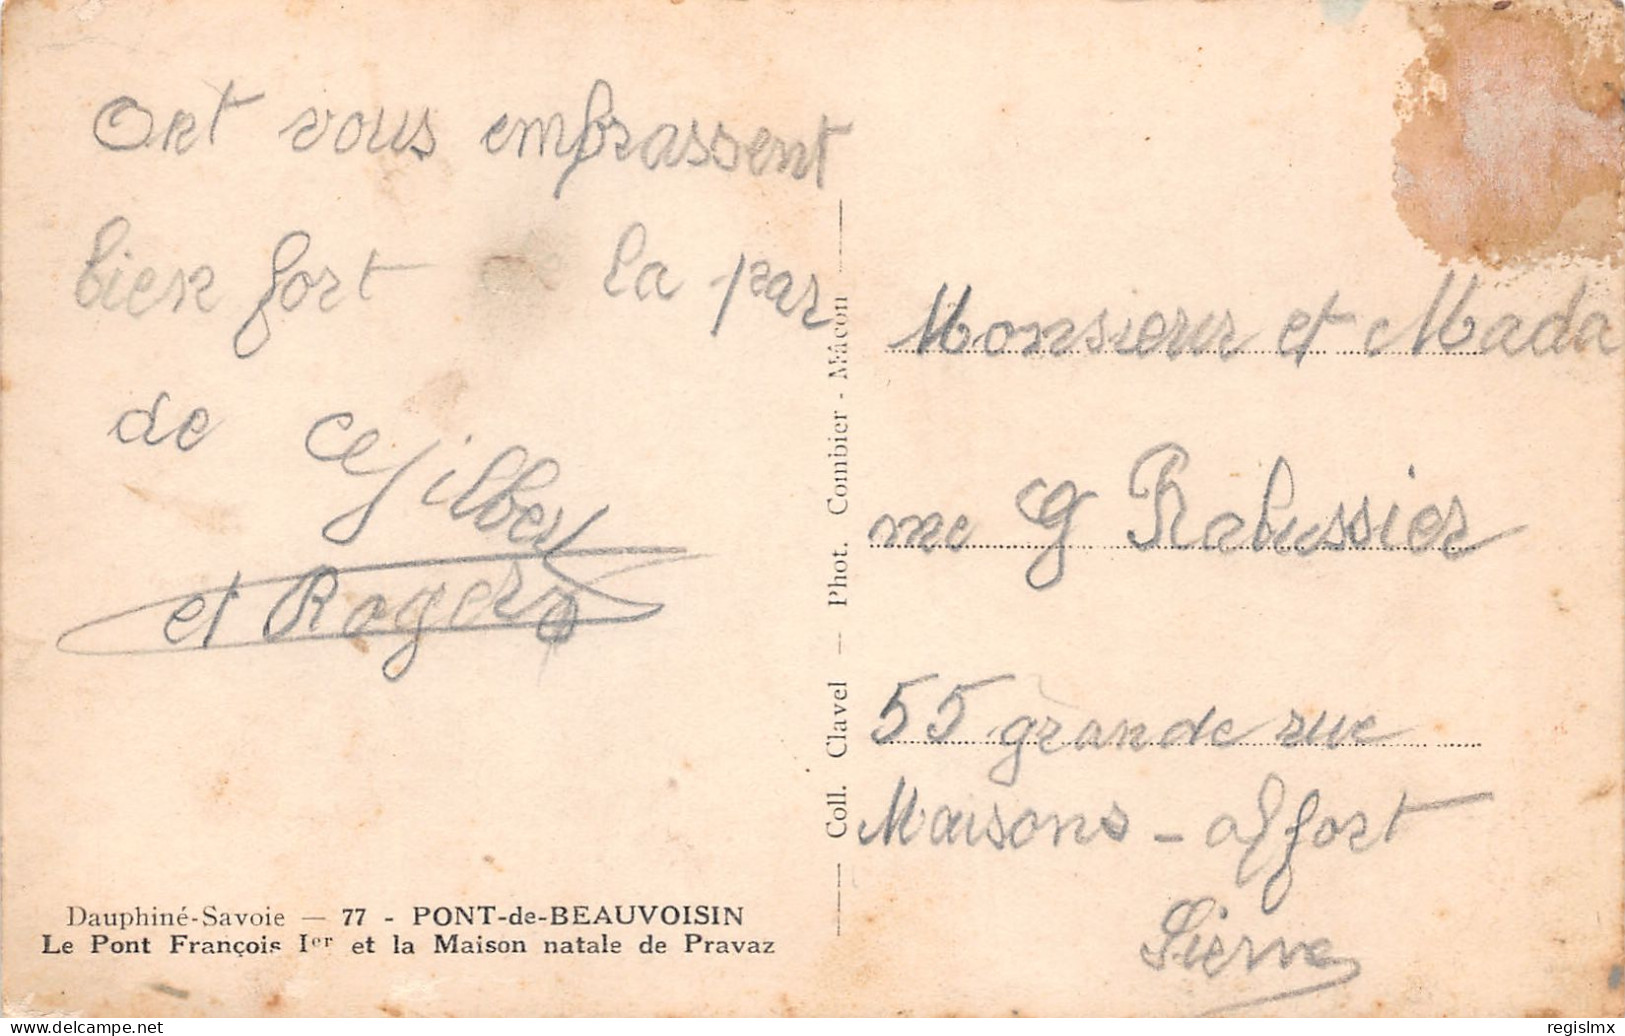 Ont vous embrassent
bien fort la par
de Gilbert
et Roger
Dauphiné-Savoie — 77 - PONT-de-BEAUVOISIN
Le Pont François Ier et la Maison natale de Pravaz
Coll. Clavel — Phot. Combier - Mâcon
Monsieur et Mada
me G Rabussier
55 grande rue
Maisons - alfort
Sierne
delcampe.net
regislmx